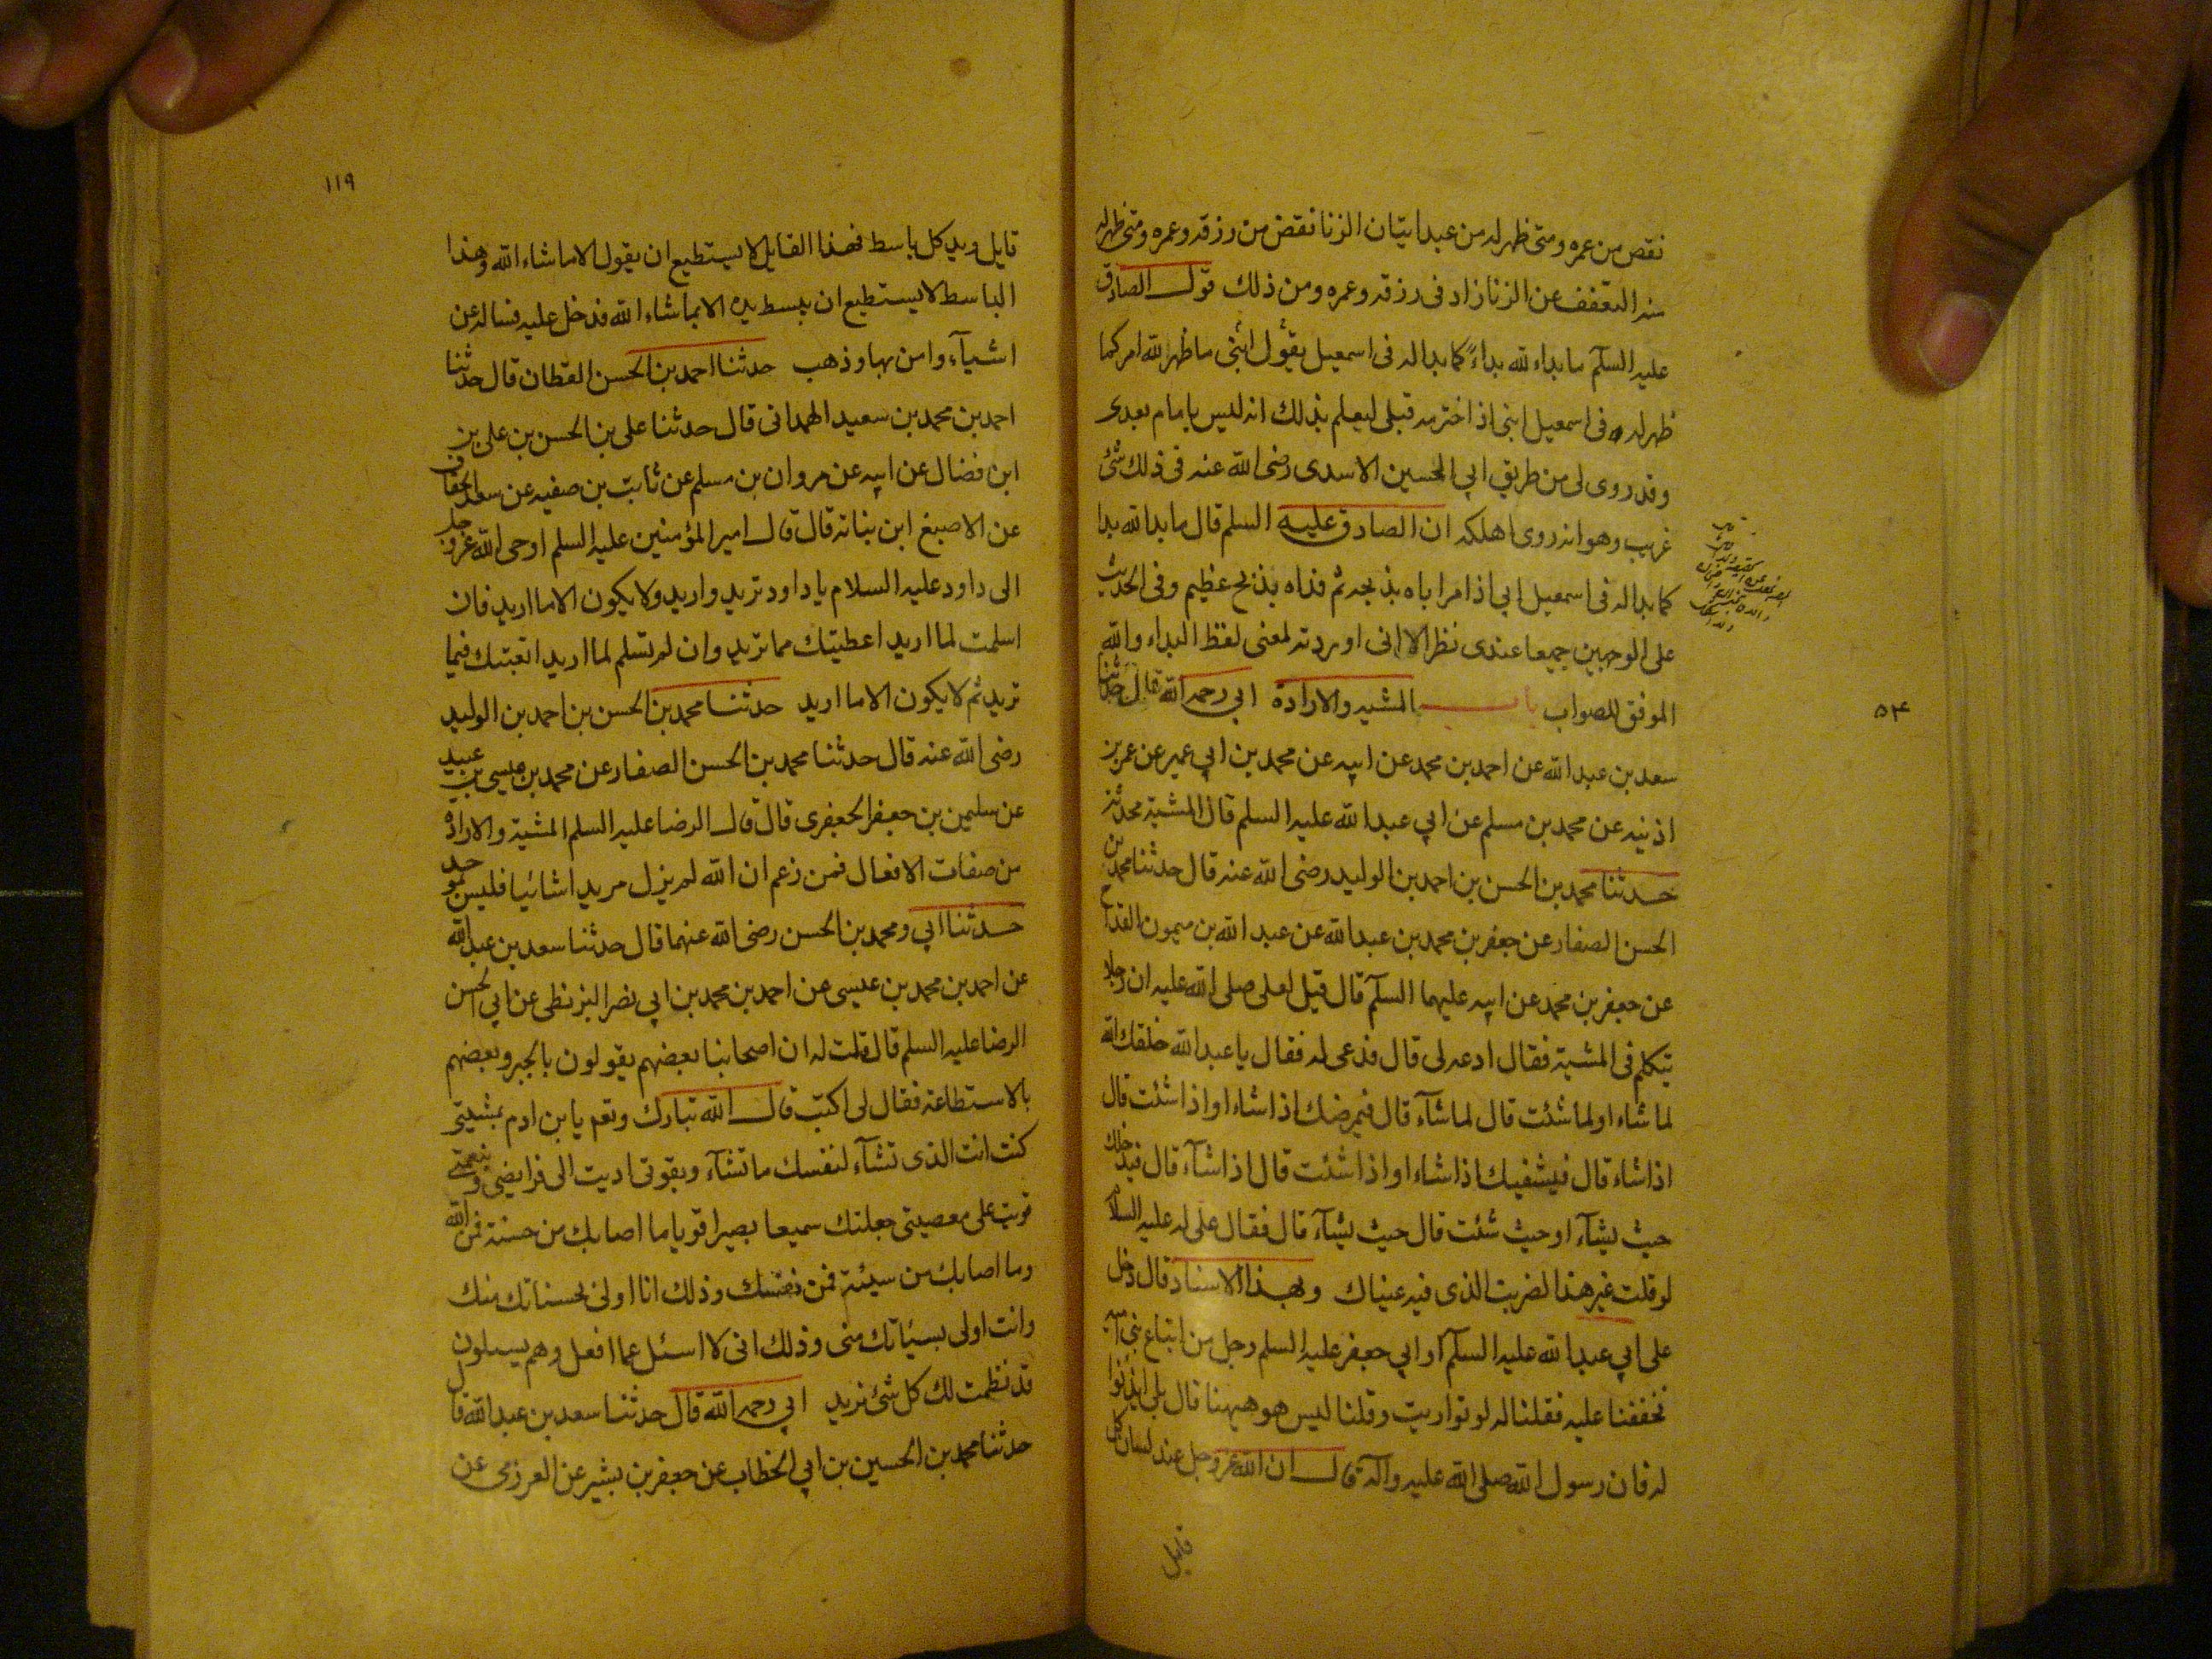 نقص من عمره ومتى ظهر له من عبد اتيان الزنا نقص من رزقه وعمره ومتى ظهر له
منه التعفف عن الزنا زاد فى رزقه وعمره ومن ذلك قول الصادق
عليه السلم ما بداء لله بداءً كما بدا له فى اسمعيل يقول ابنى ما ظهر لله امر كما
ظهر له فى اسمعيل ابنى اذ اخترمه قبلى ليعلم بذلك انه ليس بامام بعدى
وقد روى لى من طريق ابي الحسين الاسدى رضى الله عنه فى ذلك شئ
غريب وهو انه روى ان الصادق عليه السلم قال ما بدا لله بدا
كما بدا له فى اسمعيل ابي اذ امر اباه بذبحه ثم فداه بذبح عظيم وفى الحديث
على الوجهين جميعا عندى نظر الا انى اوردته لمعنى لفظ البداء والله
الموفق للصواب باب المشيه والارادة ابي رحمه الله قال حدثنا
سعد بن عبد الله عن احمد بن محمد عن ابيه عن محمد بن ابي عمير عن عمر بن
اذينه عن محمد بن مسلم عن ابي عبد الله عليه السلم قال المشية محدثة
حدثنا محمد بن الحسن بن احمد بن الوليد رضى الله عنه قال حدثنا محمد بن
الحسن الصفار عن جعفر بن محمد بن عبد الله عن عبد الله بن ميمون القداح
عن جعفر بن محمد عن ابيه عليهما السلم قال قيل لعلى صلى الله عليه ان رجلا
يتكلم فى المشية فقال ادعه لى قال فدعى له فقال يا عبد الله خلقك الله
لما شاء او لما شئت قال لما شآء قال فيمرضك اذا شاء او اذا شئت قال
اذا شاء قال فيشفيك اذا شاء او اذا شئت قال اذا شآء قال فيدخلك
حيث يشآء او حيث شئت قال حيث يشآء قال فقال على له عليه السلام
لو قلت غير هذا لضربت الذى فيه عيناك وبهذا الاسناد قال دخل
على ابي عبد الله عليه السلم او ابي جعفر عليه السلم رجل من اتباع بنى اميه
فخفنا عليه فقلنا له لو تواريت وقلنا ليس هو هيهنا قال بلى ايذنوا
له فان رسول الله صلى الله عليه وآله قال ان الله عز وجل عند لسان كل
قايل
۵۴
۱۱۹
قايل ويد كل باسط فهذا القايل لا يستطيع ان يقول الا ما شاء الله وهذا
الباسط لا يستطيع ان يبسط يده الا بما شاء الله فدخل عليه فساله عن
اشيآء وامن بها وذهب حدثنا احمد بن الحسن القطان قال حدثنا
احمد بن محمد بن سعيد الهمدانى قال حدثنا على بن الحسن بن على بن
ابن فضال عن ابيه عن مروان بن مسلم عن ثابت بن صفيه عن سعد الخفاف
عن الاصبغ ابن نباته قال قال امير المؤمنين عليه السلم اوحى الله عز وجل
الى داود عليه السلام يا داود تريد واريد ولا يكون الا ما اريد فان
اسلمت لما اريد اعطيتك مما تريد وان لم تسلم لما اريد اتعبتك فيما
تريد ثم لا يكون الا ما اريد حدثنا محمد بن الحسن بن احمد بن الوليد
رضى الله عنه قال حدثنا محمد بن الحسن الصفار عن محمد بن عيسى بن عبيد
عن سليمن بن جعفر الجعفرى قال قال الرضا عليه السلم المشية والارادة
من صفات الافعال فمن زعم ان الله لم يزل مريدا شائيا فليس بموحد
حدثنا ابي ومحمد بن الحسن رضى الله عنهما قال حدثنا سعد بن عبد الله
عن احمد بن محمد بن عيسى عن احمد بن محمد بن ابي نصر البزنطى عن ابي الحسن
الرضا عليه السلم قال قلت له ان اصحابنا بعضهم يقولون بالجبر وبعضهم
بالاستطاعة فقال لى اكتب قال الله تبارك وتعم يا بن ادم بمشيتى
كنت انت الذى تشآء لنفسك ما تشآء وبقوتى اديت الى فرايضى وبنعمتى
قويت على معصيتى جعلتك سميعا بصيرا قويا ما اصابك من حسنة فمن الله
وما اصابك من سيئة فمن نفسك وذلك انا اولى بحسناتك منك
وانت اولى بسيئاتك منى وذلك انى لا اسئل عما افعل وهم يسالون
قد نظمت لك كل شئ تريد ابي رحمه الله قال حدثنا سعد بن عبد الله قال
حدثنا محمد بن الحسين بن ابي الخطاب عن جعفر بن بشير عن العرزمى عن